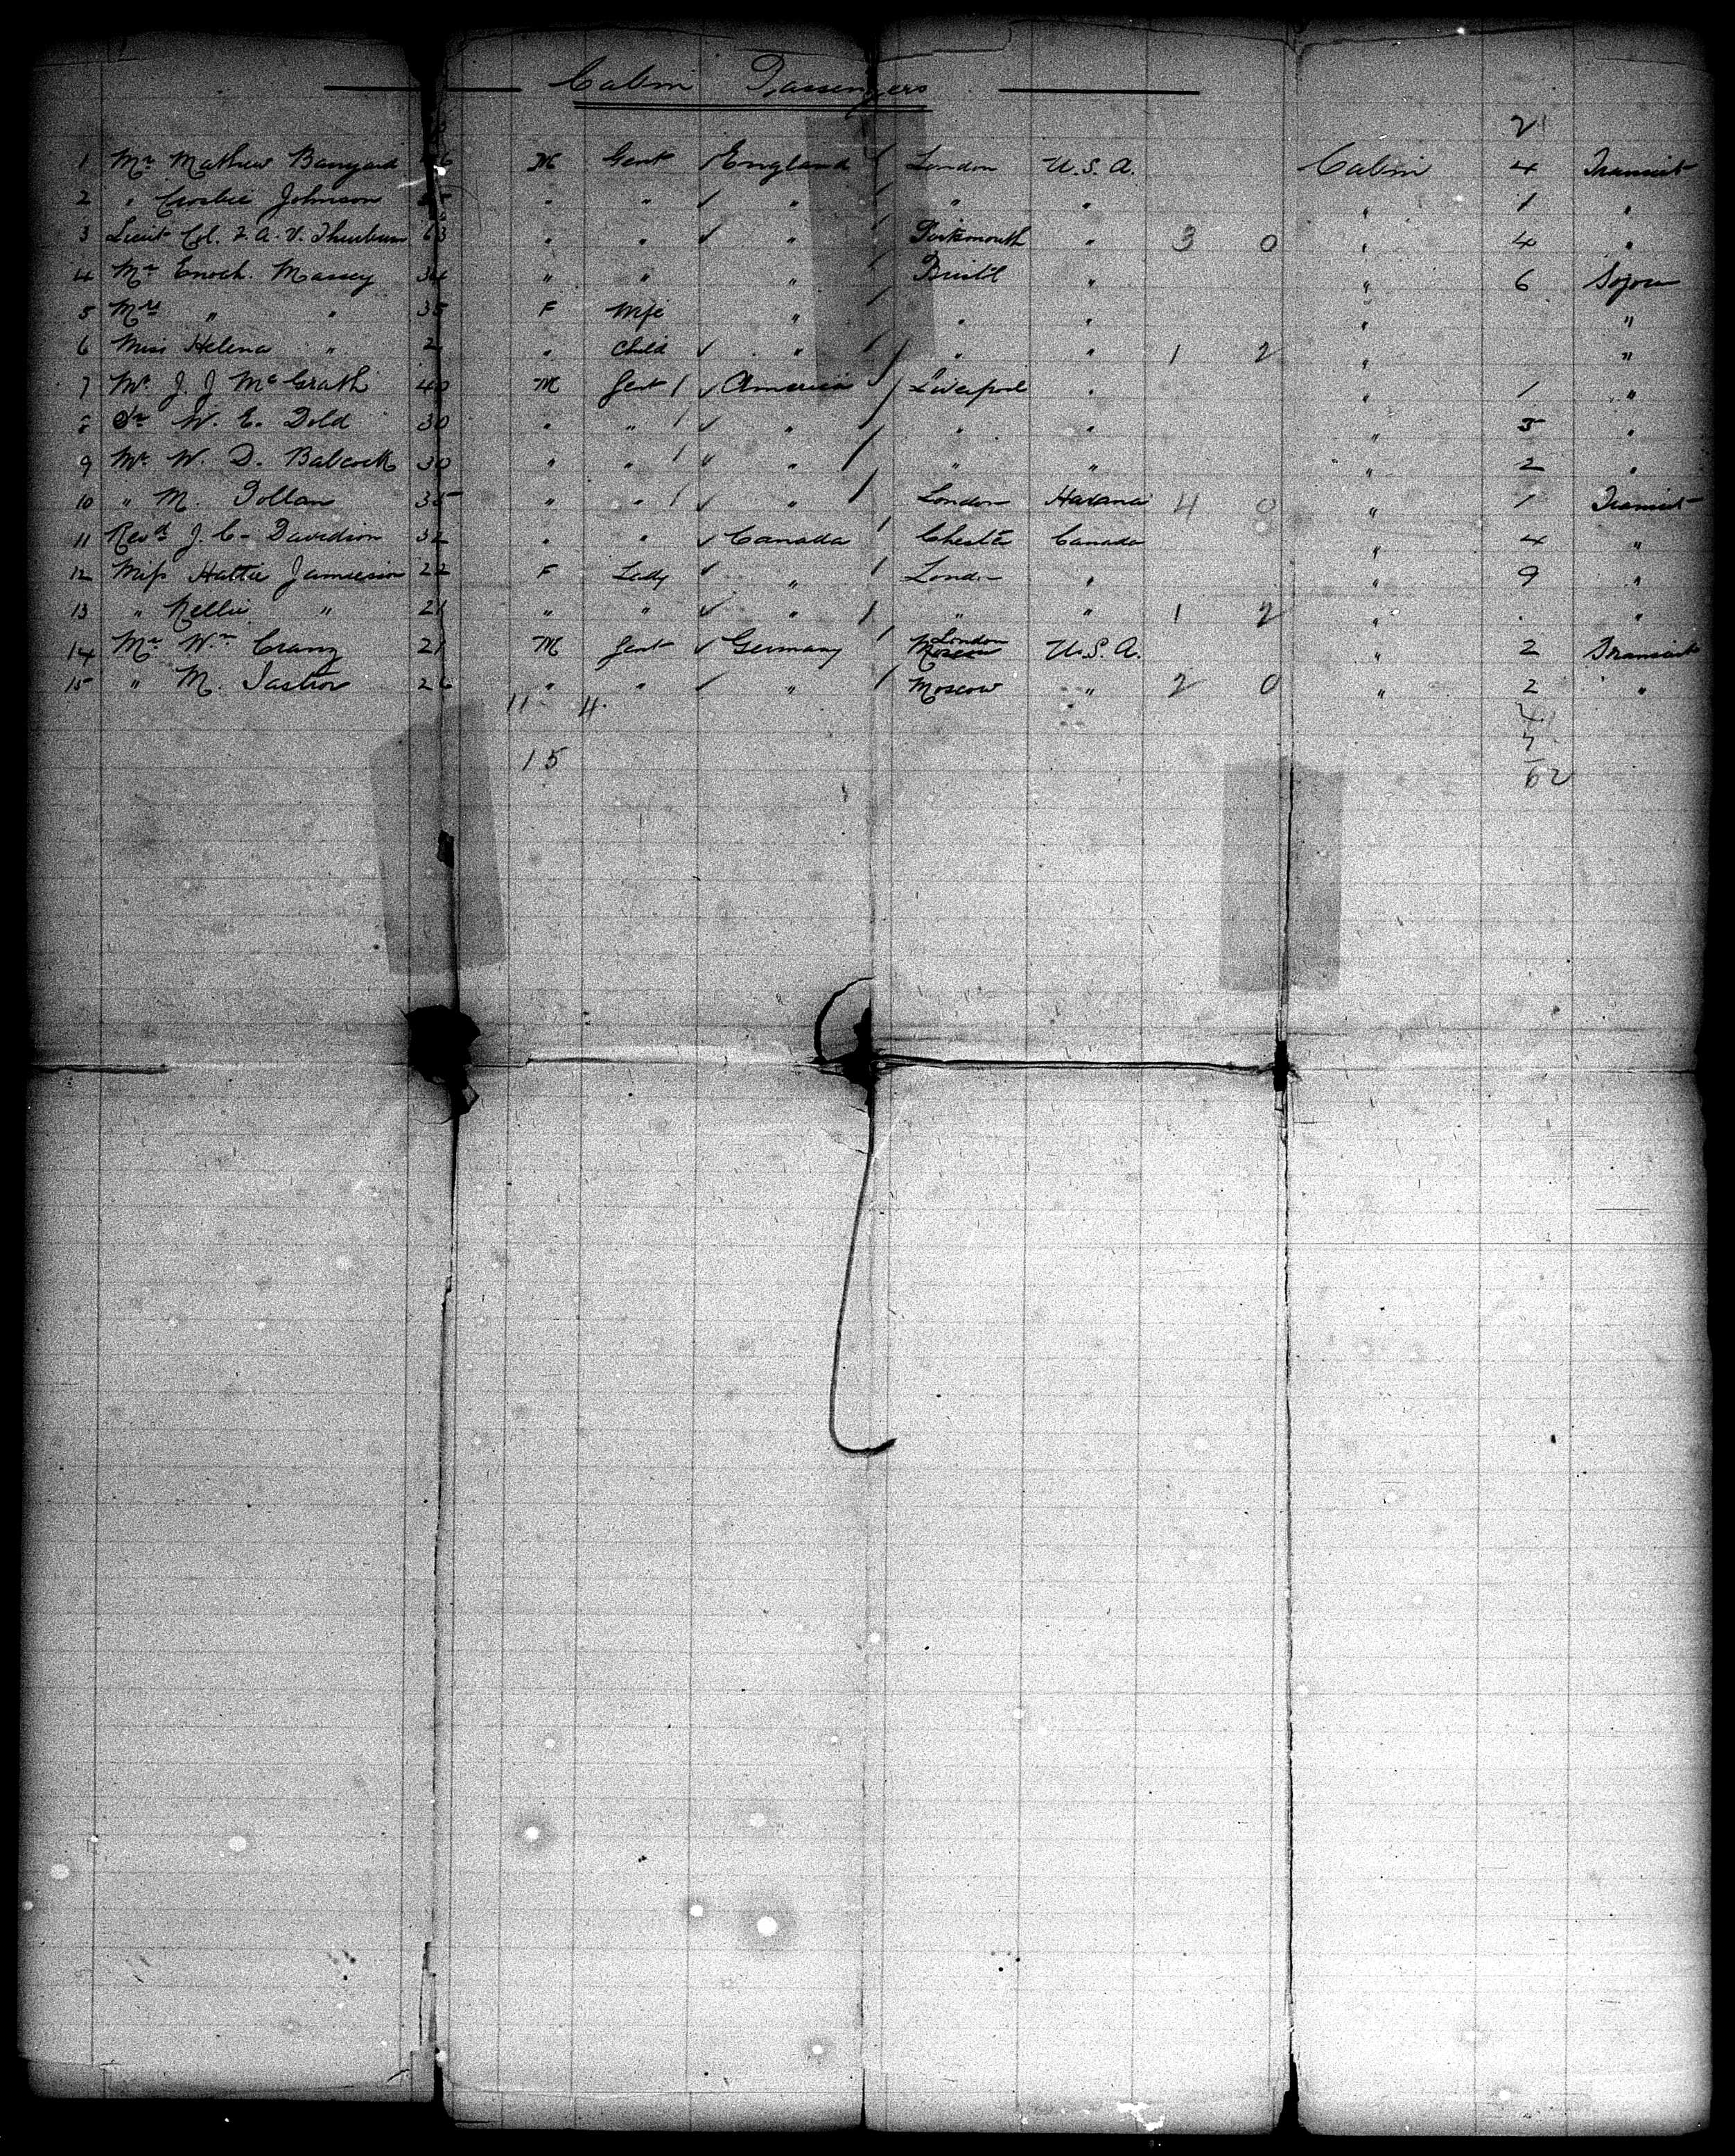 Cabin Passengers
21
1 Mr Mathew Banyard 46 M Gent ✓ England / London U.S.A. Cabin 4 Transit
2 " Crosbie Johnson " " ✓ " / " " " 1 "
3 Lieut Col. F. A. V. Thurburn 63 " " ✓ " / Portsmouth " 3 0 " 4 "
4 Mr Enoch Massey 34 " " " / Bristl " " 6 Sojou
5 Mrs " " 35 F Wife " / " " " "
6 Miss Helena " 2 " Child ✓ " / " " 1 2 " "
7 Mr J. J McGrath 40 M Gent / ✓ America / Liverpool " " 1 "
8 Dr W. E. Dold 30 " " / ✓ " / " " " 3 "
9 Mr W. D. Babcock 30 " " / ✓ " / " " " 2 "
10 " M. Dollan 35 " " / ✓ " / London Havana 4 0 " 1 Transit
11 Revd J. C. Davidson 32 " " ✓ Canada / Chester Canada " 4 "
12 Miss Hattie Jamieson 22 F Lady ✓ " / London " " 9 "
13 " Nellie " 21 " " ✓ " / " " 1 2 " " "
14 Mr Wm Cranz 21 M Gent ✓ Germany / London Moscow U.S.A. " 2 Transit
15 " M. Jastrow 26 " " ✓ " / Moscow " 2 0 " 2 "
11 4
15
62